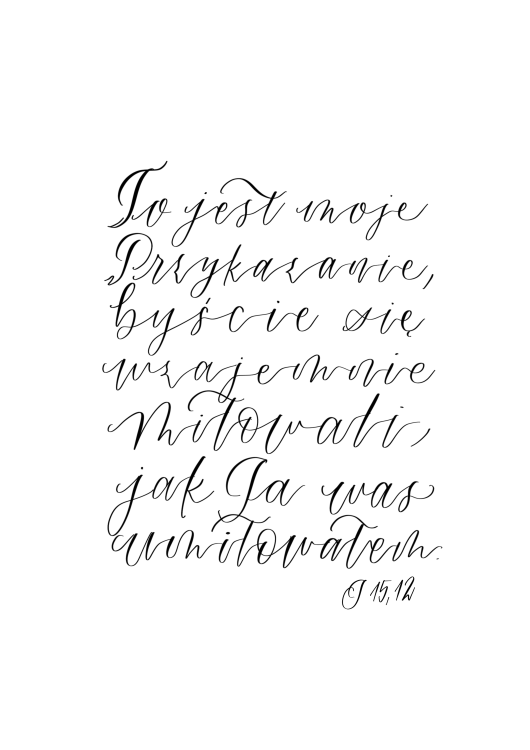 To jest moje
Przykazanie,
byście się
wzajemnie
miłowali,
jak Ja was
umiłowałem.
J 15,12